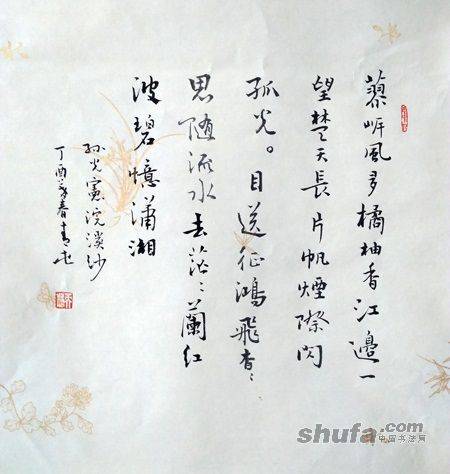 蓼岸風多橘柚香江邊一
望楚天長片帆煙際閃
孤光。目送征鴻飛杳〻
思随流水去茫〻蘭红
波碧憶瀟湘
孙光憲浣溪沙
丁酉春
shufa.com
中国书法网